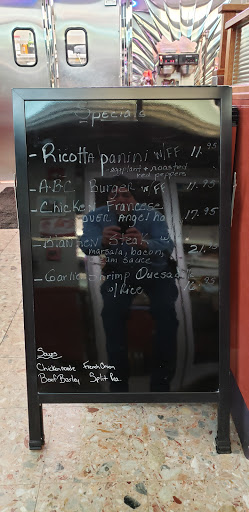 Specials
- Ricotta panini w/FF 11.95
- eggplant + roasted
red peppers
- A.B.C. Burger w/FF 11.95
- Chicken Francese 17.95
over Angel ha
Steak w/
marsala, bacon,
sauce
- Garlic Shrimp Quesad
w/rice
Soups
Chicken noodle French Onion
Beef Barley Split Pea